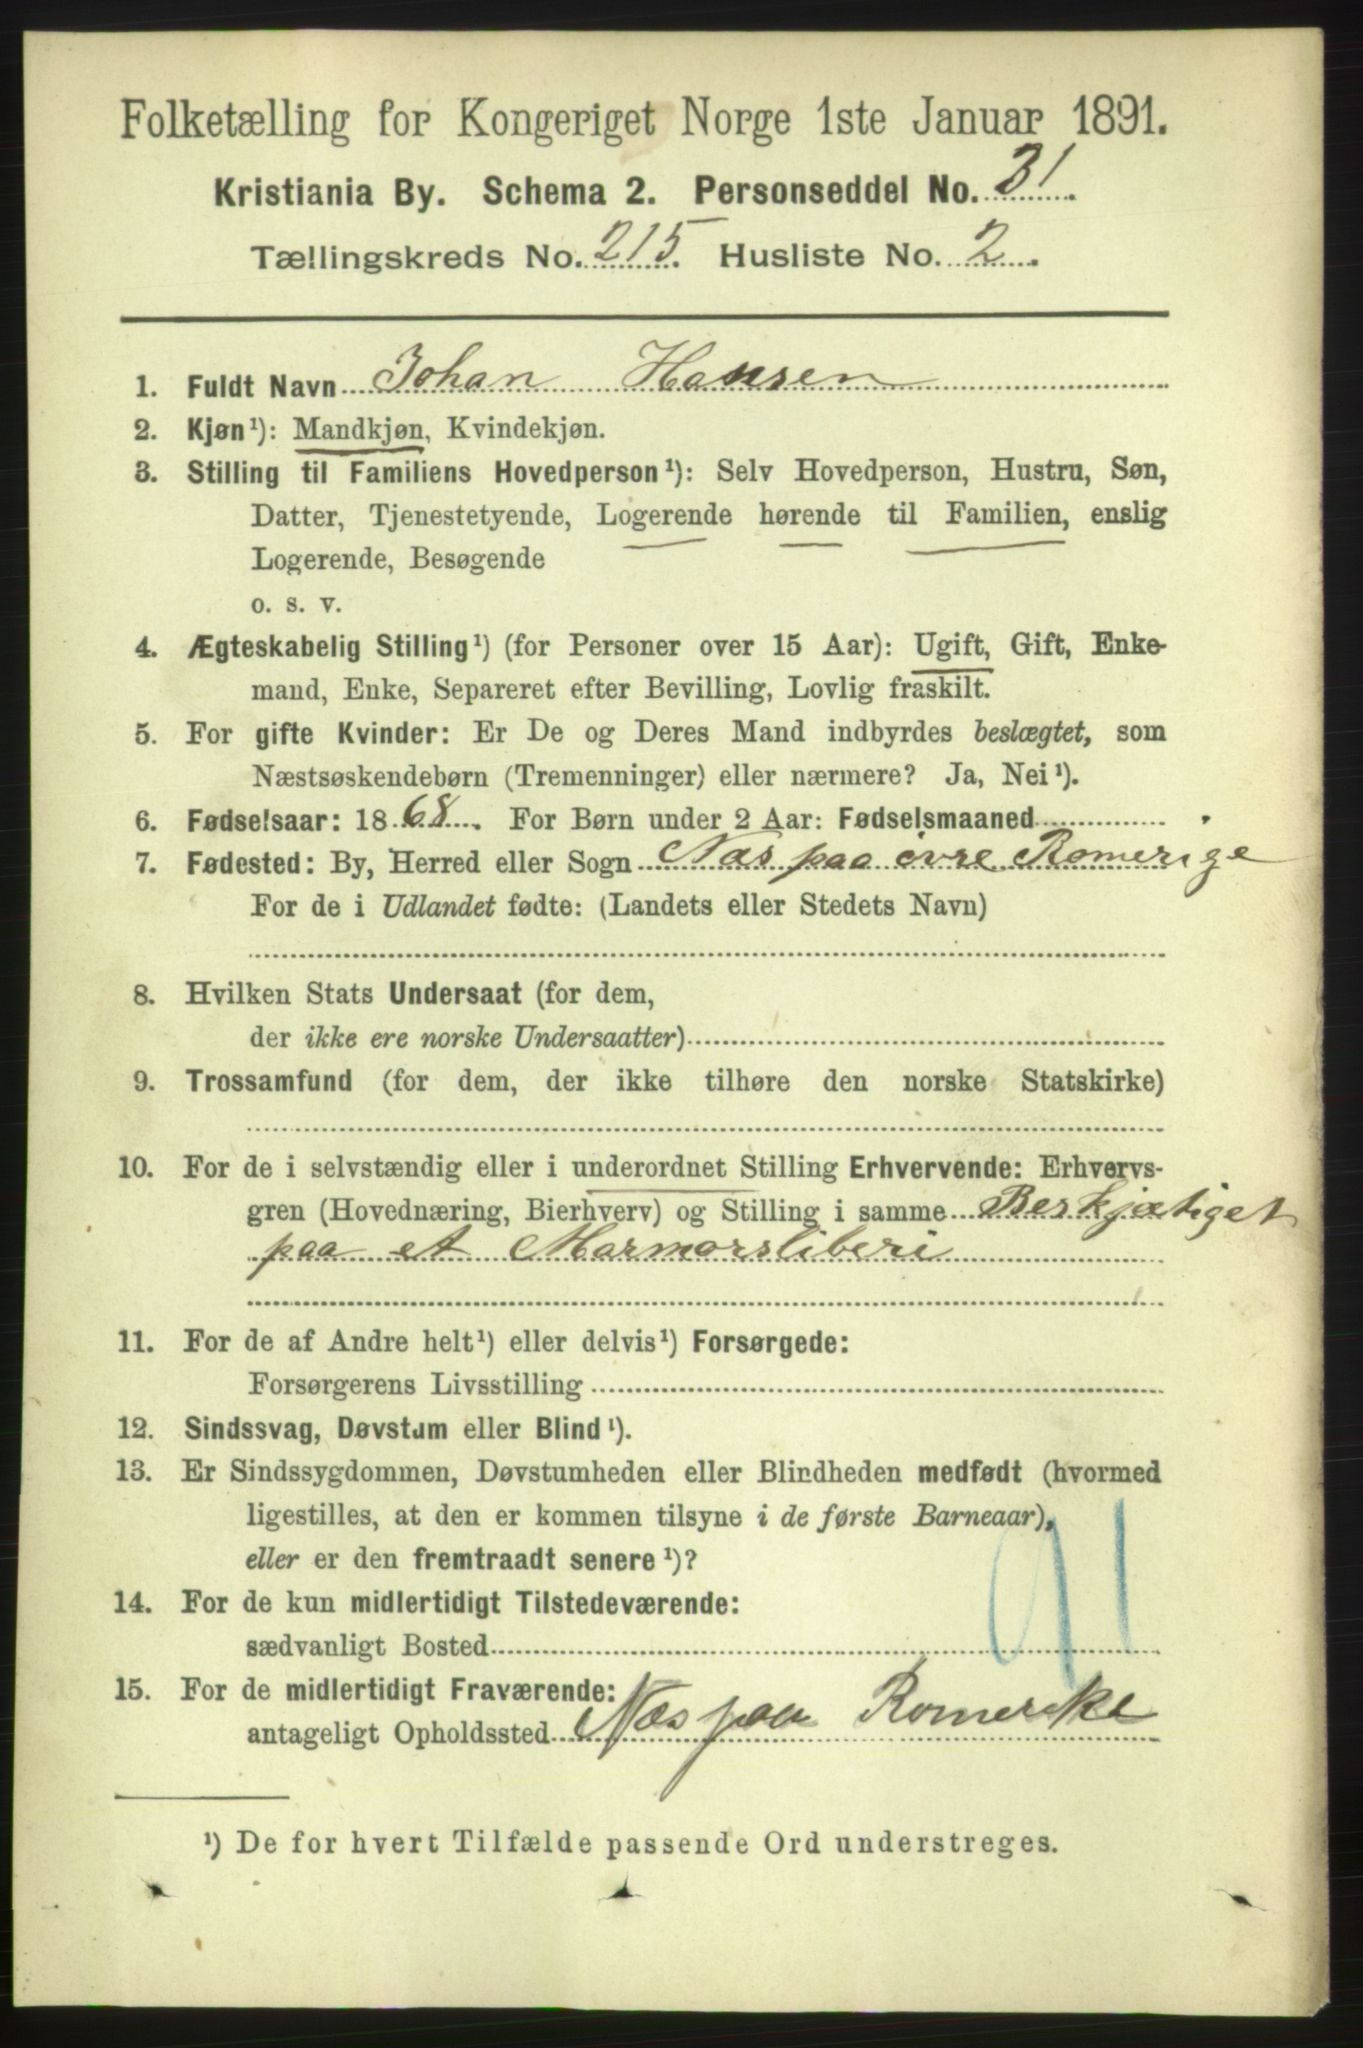 Folketælling for Kongeriget Norge 1ste Januar 1891.
Kristiania By. Schema 2. Personseddel No. 31.
Tællingskreds No. 215. Husliste No. 2.
1. Fuldt Navn Johan Hansen
2. Kjøn¹): Mandkjøn, Kvindekjøn.
3. Stilling til Familiens Hovedperson¹): Selv Hovedperson, Hustru, Søn,
Datter, Tjenestetyende, Logerende hørende til Familien, enslig
Logerende, Besøgende
o. s. v.
4. Ægteskabelig Stilling¹) (for Personer over 15 Aar): Ugift, Gift, Enke-
mand, Enke, Separeret efter Bevilling, Lovlig fraskilt.
5. For gifte Kvinder: Er De og Deres Mand indbyrdes beslægtet, som
Næstsøskendebørn (Tremenninger) eller nærmere? Ja, Nei¹).
6. Fødselsaar: 1868. For Børn under 2 Aar: Fødselsmaaned
7. Fødested: By, Herred eller Sogn Næs paa övre Romerige
For de i Udlandet fødte: (Landets eller Stedets Navn)
8. Hvilken Stats Undersaat (for dem,
der ikke ere norske Undersaatter)
9. Trossamfund (for dem, der ikke tilhøre den norske Statskirke)
10. For de i selvstændig eller i underordnet Stilling Erhvervende: Erhvervs-
gren (Hovednæring, Bierhverv) og Stilling i samme Beskjætiget
paa et Marmorsliberi
11. For de af Andre helt¹) eller delvis¹) Forsørgede:
Forsørgerens Livsstilling
12. Sindssvag, Døvstum eller Blind¹).
13. Er Sindssygdommen, Døvstumheden eller Blindheden medfødt (hvormed
ligestilles, at den er kommen tilsyne i de første Barneaar),
eller er den fremtraadt senere¹)?
91
14. For de kun midlertidigt Tilstedeværende:
sædvanligt Bosted
15. For de midlertidigt Fraværende:
antageligt Opholdssted Næs paa Romerike
¹) De for hvert Tilfælde passende Ord understreges.